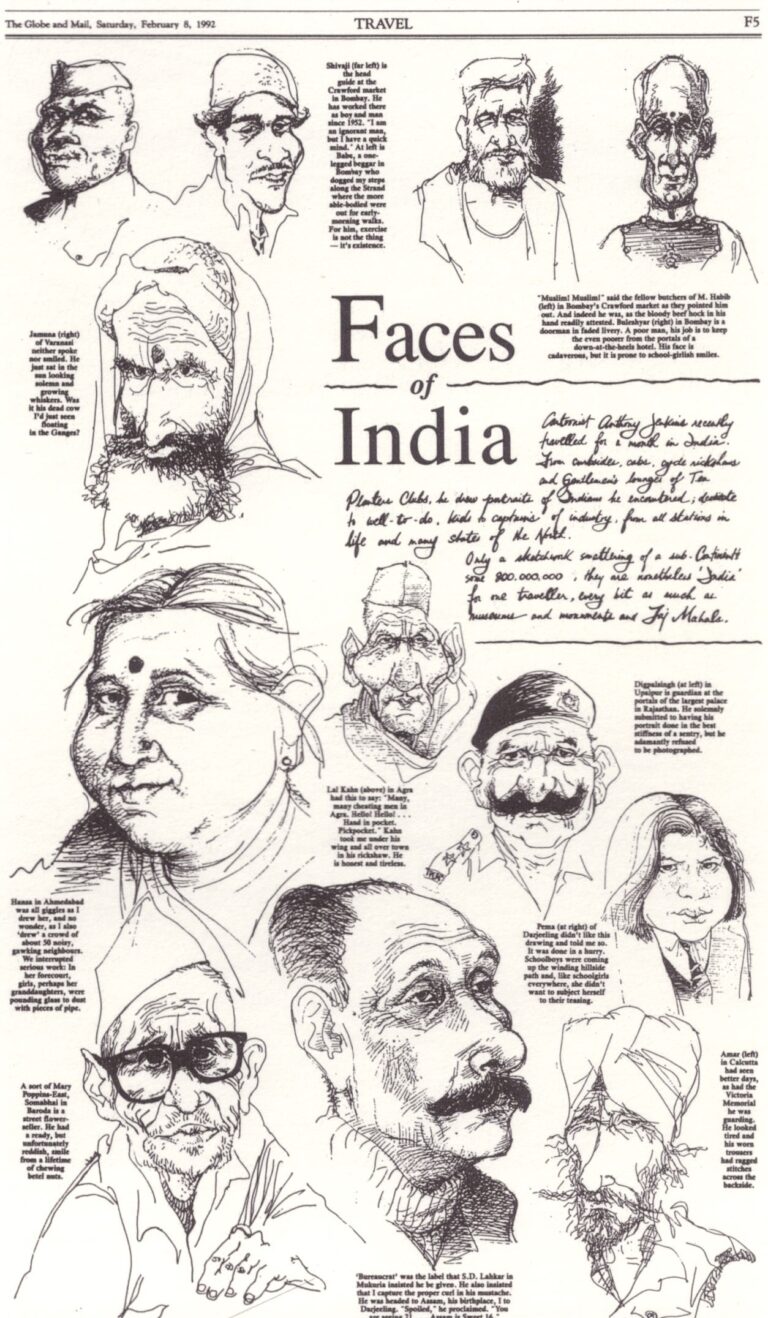 The Globe and Mail, Saturday, February 8, 1992
TRAVEL
F5
Shivaji (far left) is
the head
guide at the
Crawford market
in Bombay. He
has worked there
as boy and man
since 1952. "I am
an ignorant man,
but I have a quick
mind." At left is
Babe, a one-
legged beggar in
Bombay who
dogged my steps
along the Strand
where the more
able-bodied were
out for early-
morning walks.
For him, exercise
is not the thing
— it's existence.
"Muslim! Muslim!" said the fellow butchers of M. Habib
(left) in Bombay's Crawford market as they pointed him
out. And indeed he was, as the bloody beef hock in his
hand readily attested. Buleshyar (right) in Bombay is a
doorman in faded livery. A poor man, his job is to keep
the even poorer from the portals of a
down-at-the-heels hotel. His face is
cadaverous, but it is prone to school-girlish smiles.
Jamuna (right)
of Varanasi
neither spoke
nor smiled. He
just sat in the
sun looking
solemn and
growing
whiskers. Was
it his dead cow
I'd just seen
floating
in the Ganges?
Faces
of
India
Cartoonist Anthony Jenkins recently
travelled for a month in India.
From curbsides, cabs, cycle rickshaws
and Gentlemen's lounges of Tea
Planters Clubs, he drew portraits of Indians he encountered; destitute
to well-to-do, kids to captains of industry, from all stations in
life and many states of the North.
Only a sketchbook smattering of a sub-Continent's
some 800,000,000, they are nonetheless 'India'
for one traveller, every bit as much as
museums and monuments and Taj Mahals.
Digpalsingh (at left) in
Upaipur is guardian at the
portals of the largest palace
in Rajasthan. He solemnly
submitted to having his
portrait done in the best
stiffness of a sentry, but he
adamantly refused
to be photographed.
Lal Kahn (above) in Agra
had this to say: "Many,
many cheating men in
Agra. Hello! Hello! . . .
Hand in pocket.
Pickpocket." Kahn
took me under his
wing and all over town
in his rickshaw. He
is honest and tireless.
Hansa in Ahmedabad
was all giggles as I
drew her, and no
wonder, as I also
'drew' a crowd of
about 50 noisy,
gawking neighbours.
We interrupted
serious work: In
her forecourt,
girls, perhaps her
granddaughters, were
pounding glass to dust
with pieces of pipe.
Pema (at right) of
Darjeeling didn't like this
drawing and told me so.
It was done in a hurry.
Schoolboys were coming
up the winding hillside
path and, like schoolgirls
everywhere, she didn't
want to subject herself
to their teasing.
A sort of Mary
Poppins-East,
Somabhai in
Baroda is a
street flower-
seller. He had
a ready, but
unfortunately
reddish, smile
from a lifetime
of chewing
betel nuts.
Amar (left)
in Calcutta
had seen
better days,
as had the
Victoria
Memorial
he was
guarding.
He looked
tired and
his worn
trousers
had ragged
stitches
across the
backside.
'Bureaucrat' was the label that S.D. Lahkar in
Mukuria insisted he be given. He also insisted
that I capture the proper curl in his mustache.
He was headed to Assam, his birthplace, I to
Darjeeling. "Spoiled," he proclaimed. "You